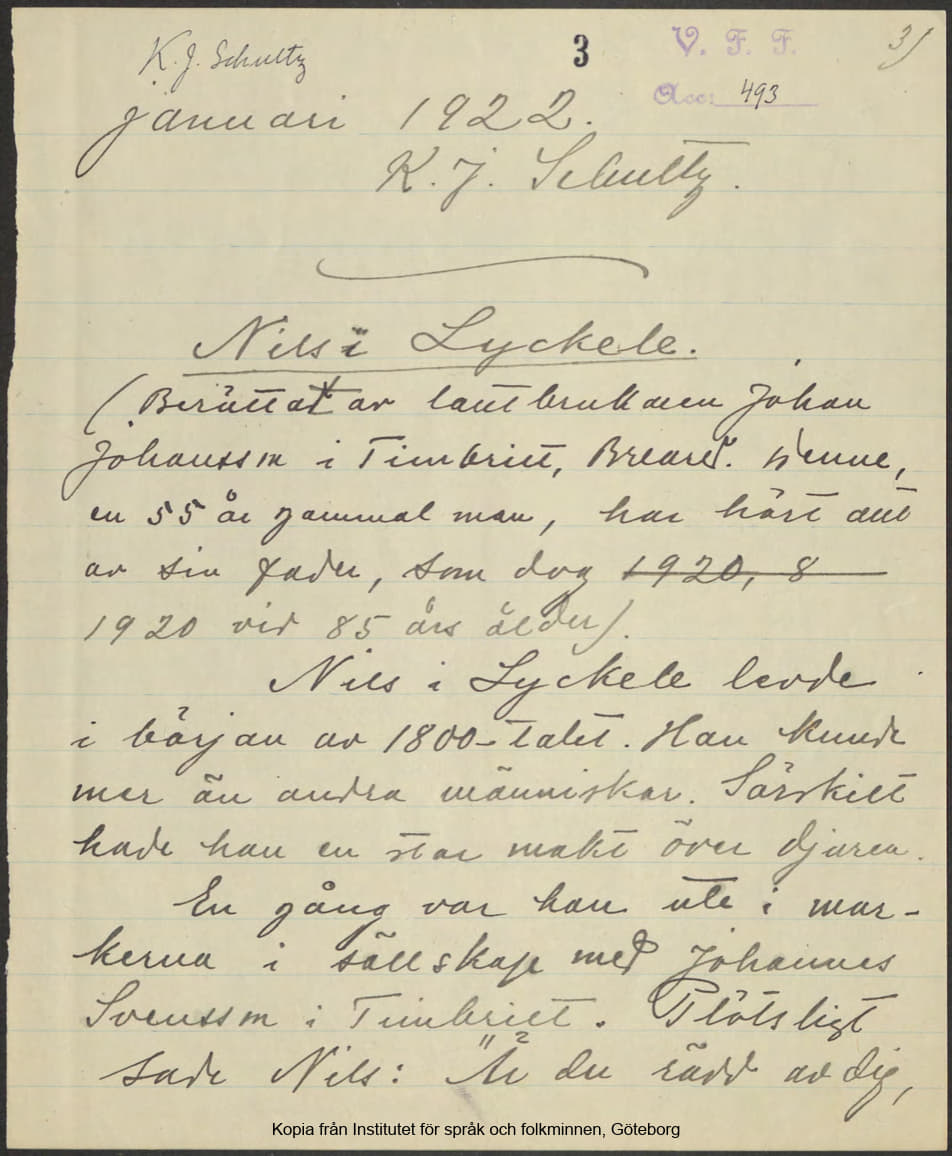 K. J. Schultz
3
V. F. F.
3)
Acc: 493
januari 1922.
K. J. Schultz.
Nils i Lyckele.
(Berättat av lantbrukaren Johan
Johansson i Timbritt, Breared. Denne,
en 55 år gammal man, har hört det
av sin fader, som dog 1920, 8
1920 vid 85 års ålder).
Nils i Lyckele levde
i början av 1800-talet. Han kunde
mer än andra människor. Särskilt
hade han en stor makt över djuren.
En gång var han ute i mar-
kerna i sällskap med Johannes
Svensson i Timbritt. Plötsligt
sade Nils: "Är du rädd av dig,
Kopia från Institutet för språk och folkminnen, Göteborg